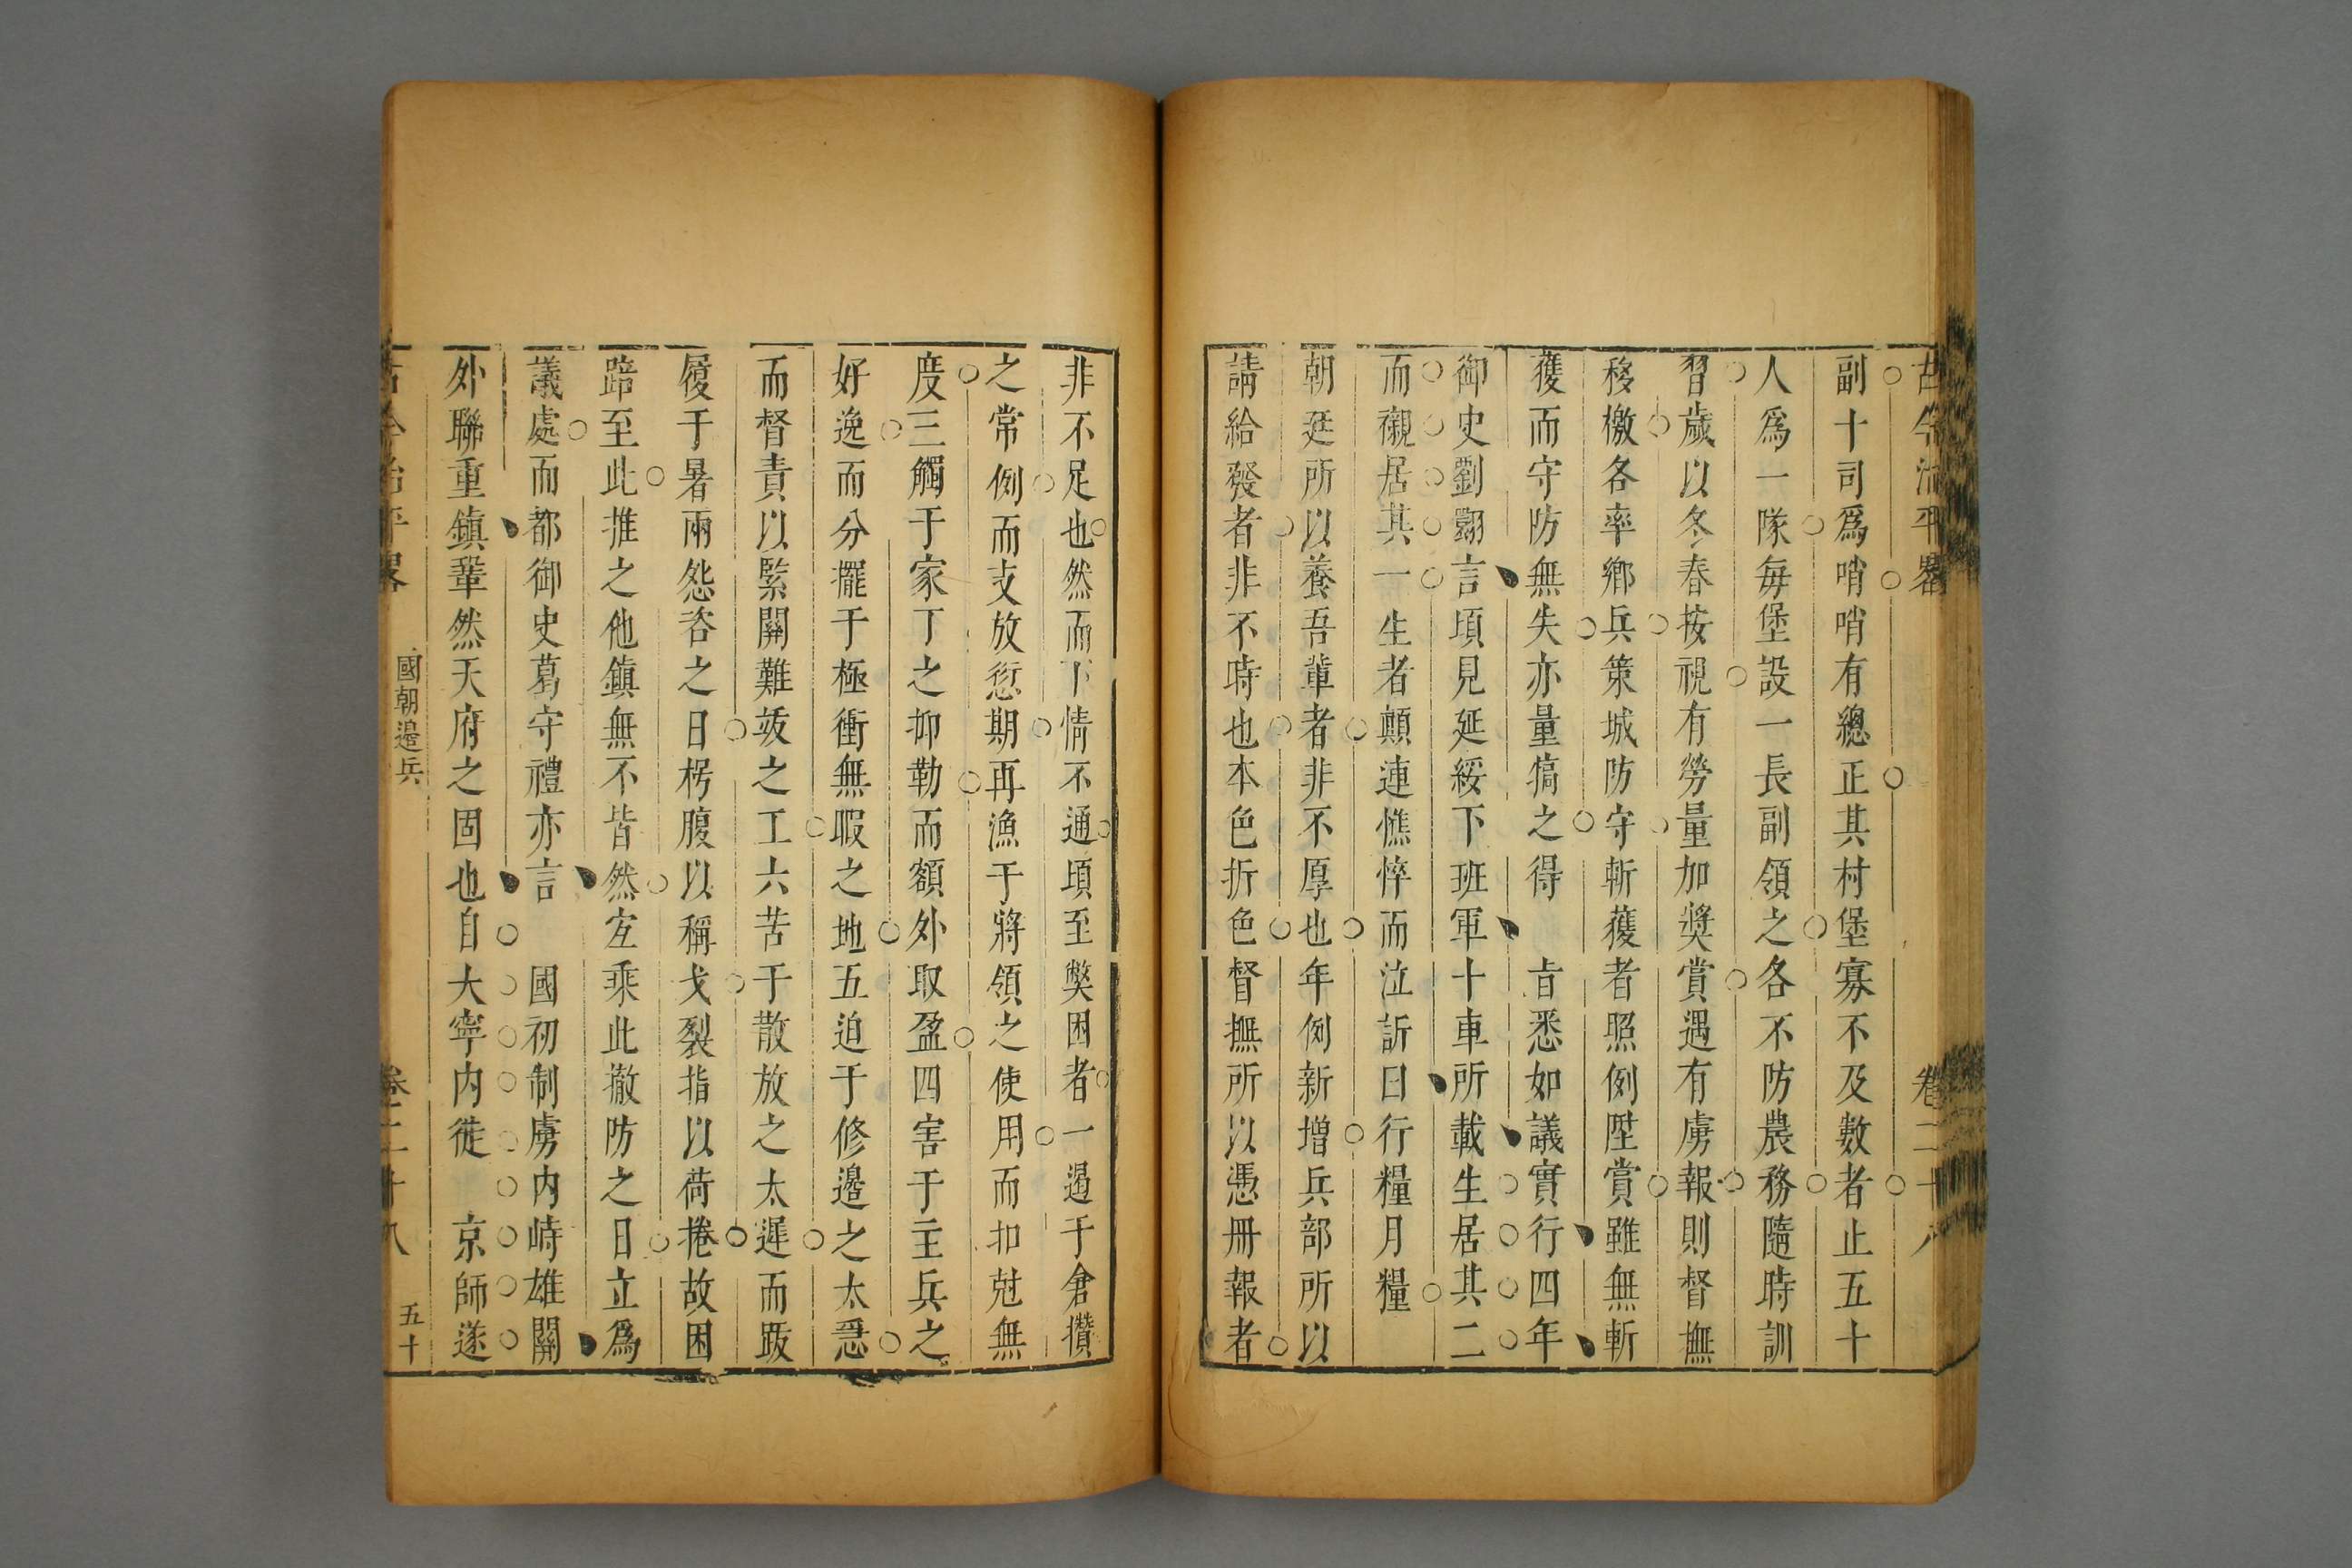 古今治平畧 卷二十八
副十司爲哨哨有總正其村堡寡不及數者止五十
人爲一隊每堡設一長副領之各不防農務隨時訓
習歲以冬春按視有勞量加獎賞遇有虜報則督撫
移檄各率鄉兵策城防守斬獲者照例陞賞雖無斬
獲而守防無失亦量犒之得 旨悉如議實行四年
御史劉翾言頃見延綏下班軍十車所載生居其二
而襯居其一生者顛連憔悴而泣訴曰行糧月糧
朝廷所以養吾輩者非不厚也年例新增兵部所以
請給發者非不時也本色折色督撫所以憑冊報者
非不足也然而下情不通頃至獘困者一遏于倉攢
之常例而支放愆期再漁于將領之使用而扣尅無
度三觸于家丁之抑勒而額外取盈四害于主兵之
好逸而分擺于極衝無暇之地五迫于修邊之太亟
而督責以緊關難竣之工六苦于散放之太遲而跋
履于暑雨怨咨之日枵腹以稱戈裂指以荷捲故困
踣至此推之他鎮無不皆然宜乘此撤防之日立爲
議處而都御史葛守禮亦言 國初制虜內峙雄關
外聯重鎮鞏然天府之固也自大寧內徙 京師遂
古今治平畧 國朝邊兵 卷二十八 五十